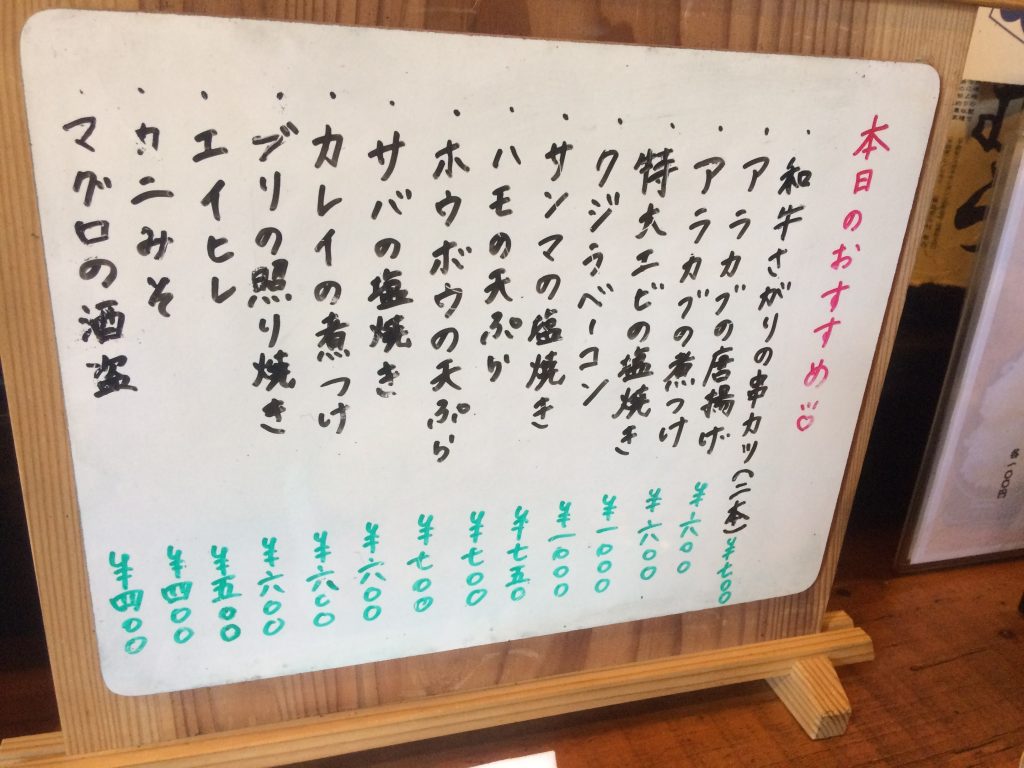 本日のおすすめ♡
・和牛さがりの串カツ(二本) ¥七〇〇
・アラカブの唐揚げ ¥六〇〇
・アラカブの煮つけ ¥六〇〇
・特大エビの塩焼き ¥一〇〇〇
・クジラベーコン ¥一〇〇〇
・サンマの塩焼き ¥七五〇
・ハモの天ぷら ¥七〇〇
・ホウボウの天ぷら ¥七〇〇
・サバの塩焼き ¥六〇〇
・カレイの煮つけ ¥六〇〇
・ブリの照り焼き ¥六〇〇
・エイヒレ ¥五〇〇
・カニみそ ¥四〇〇
・マグロの酒盗 ¥四〇〇
各一〇〇円